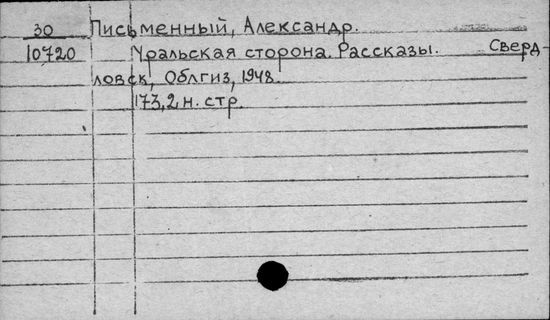 30 Письменный, Александр.
10720 Уральская сторона. Рассказы. Сверд-
ловск, Облгиз, 1948.
173,2 н. стр.